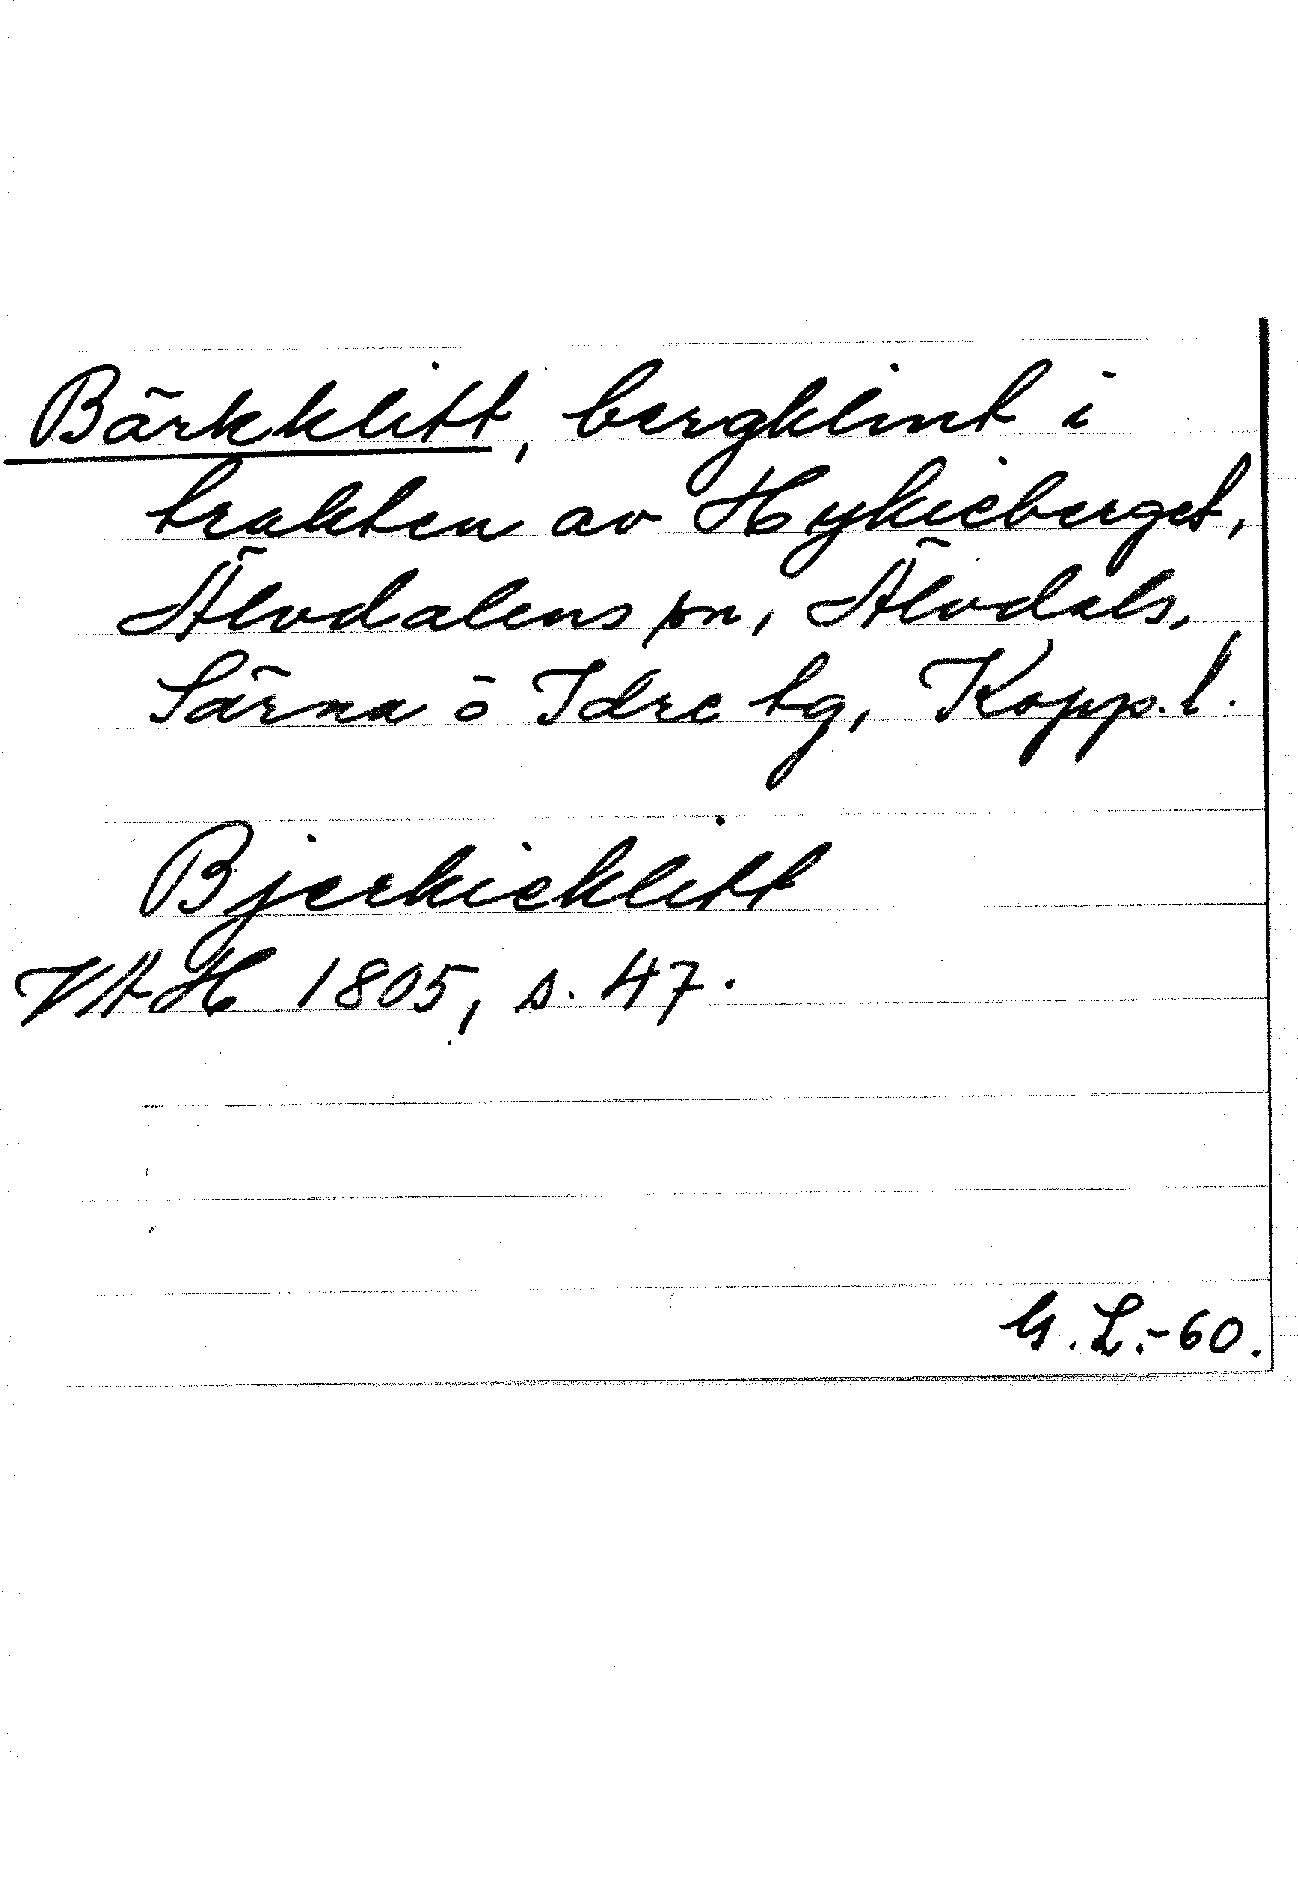 Bärkklitt, bergklint i
trakten av Hykieberget,
Älvdalens sn, Älvdals,
Särna o Idre tg, Kopp. l.
Bjerkieklitt
VAH 1805, s. 47.
G. L. -60.